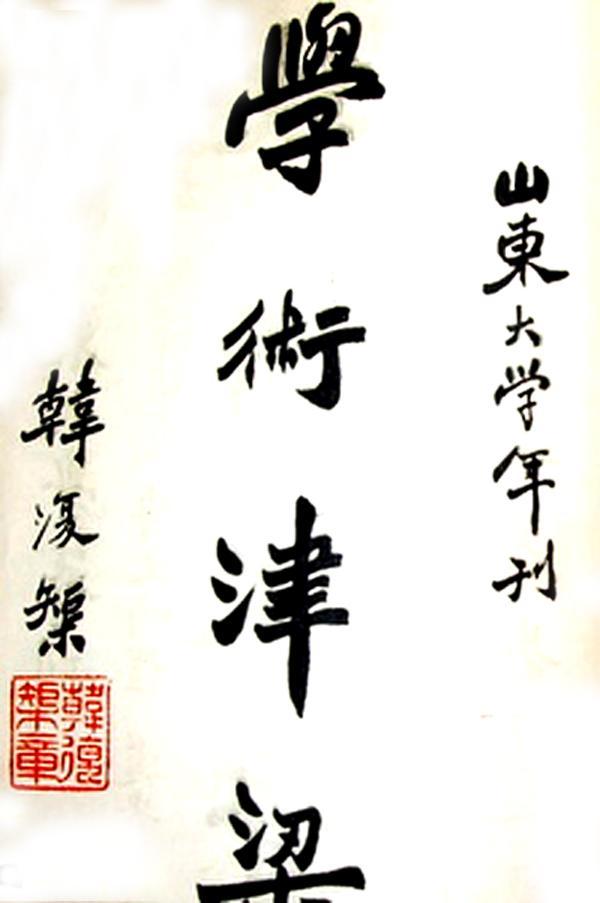 山東大学年刊
學術津梁
韓復榘
韓復
榘章